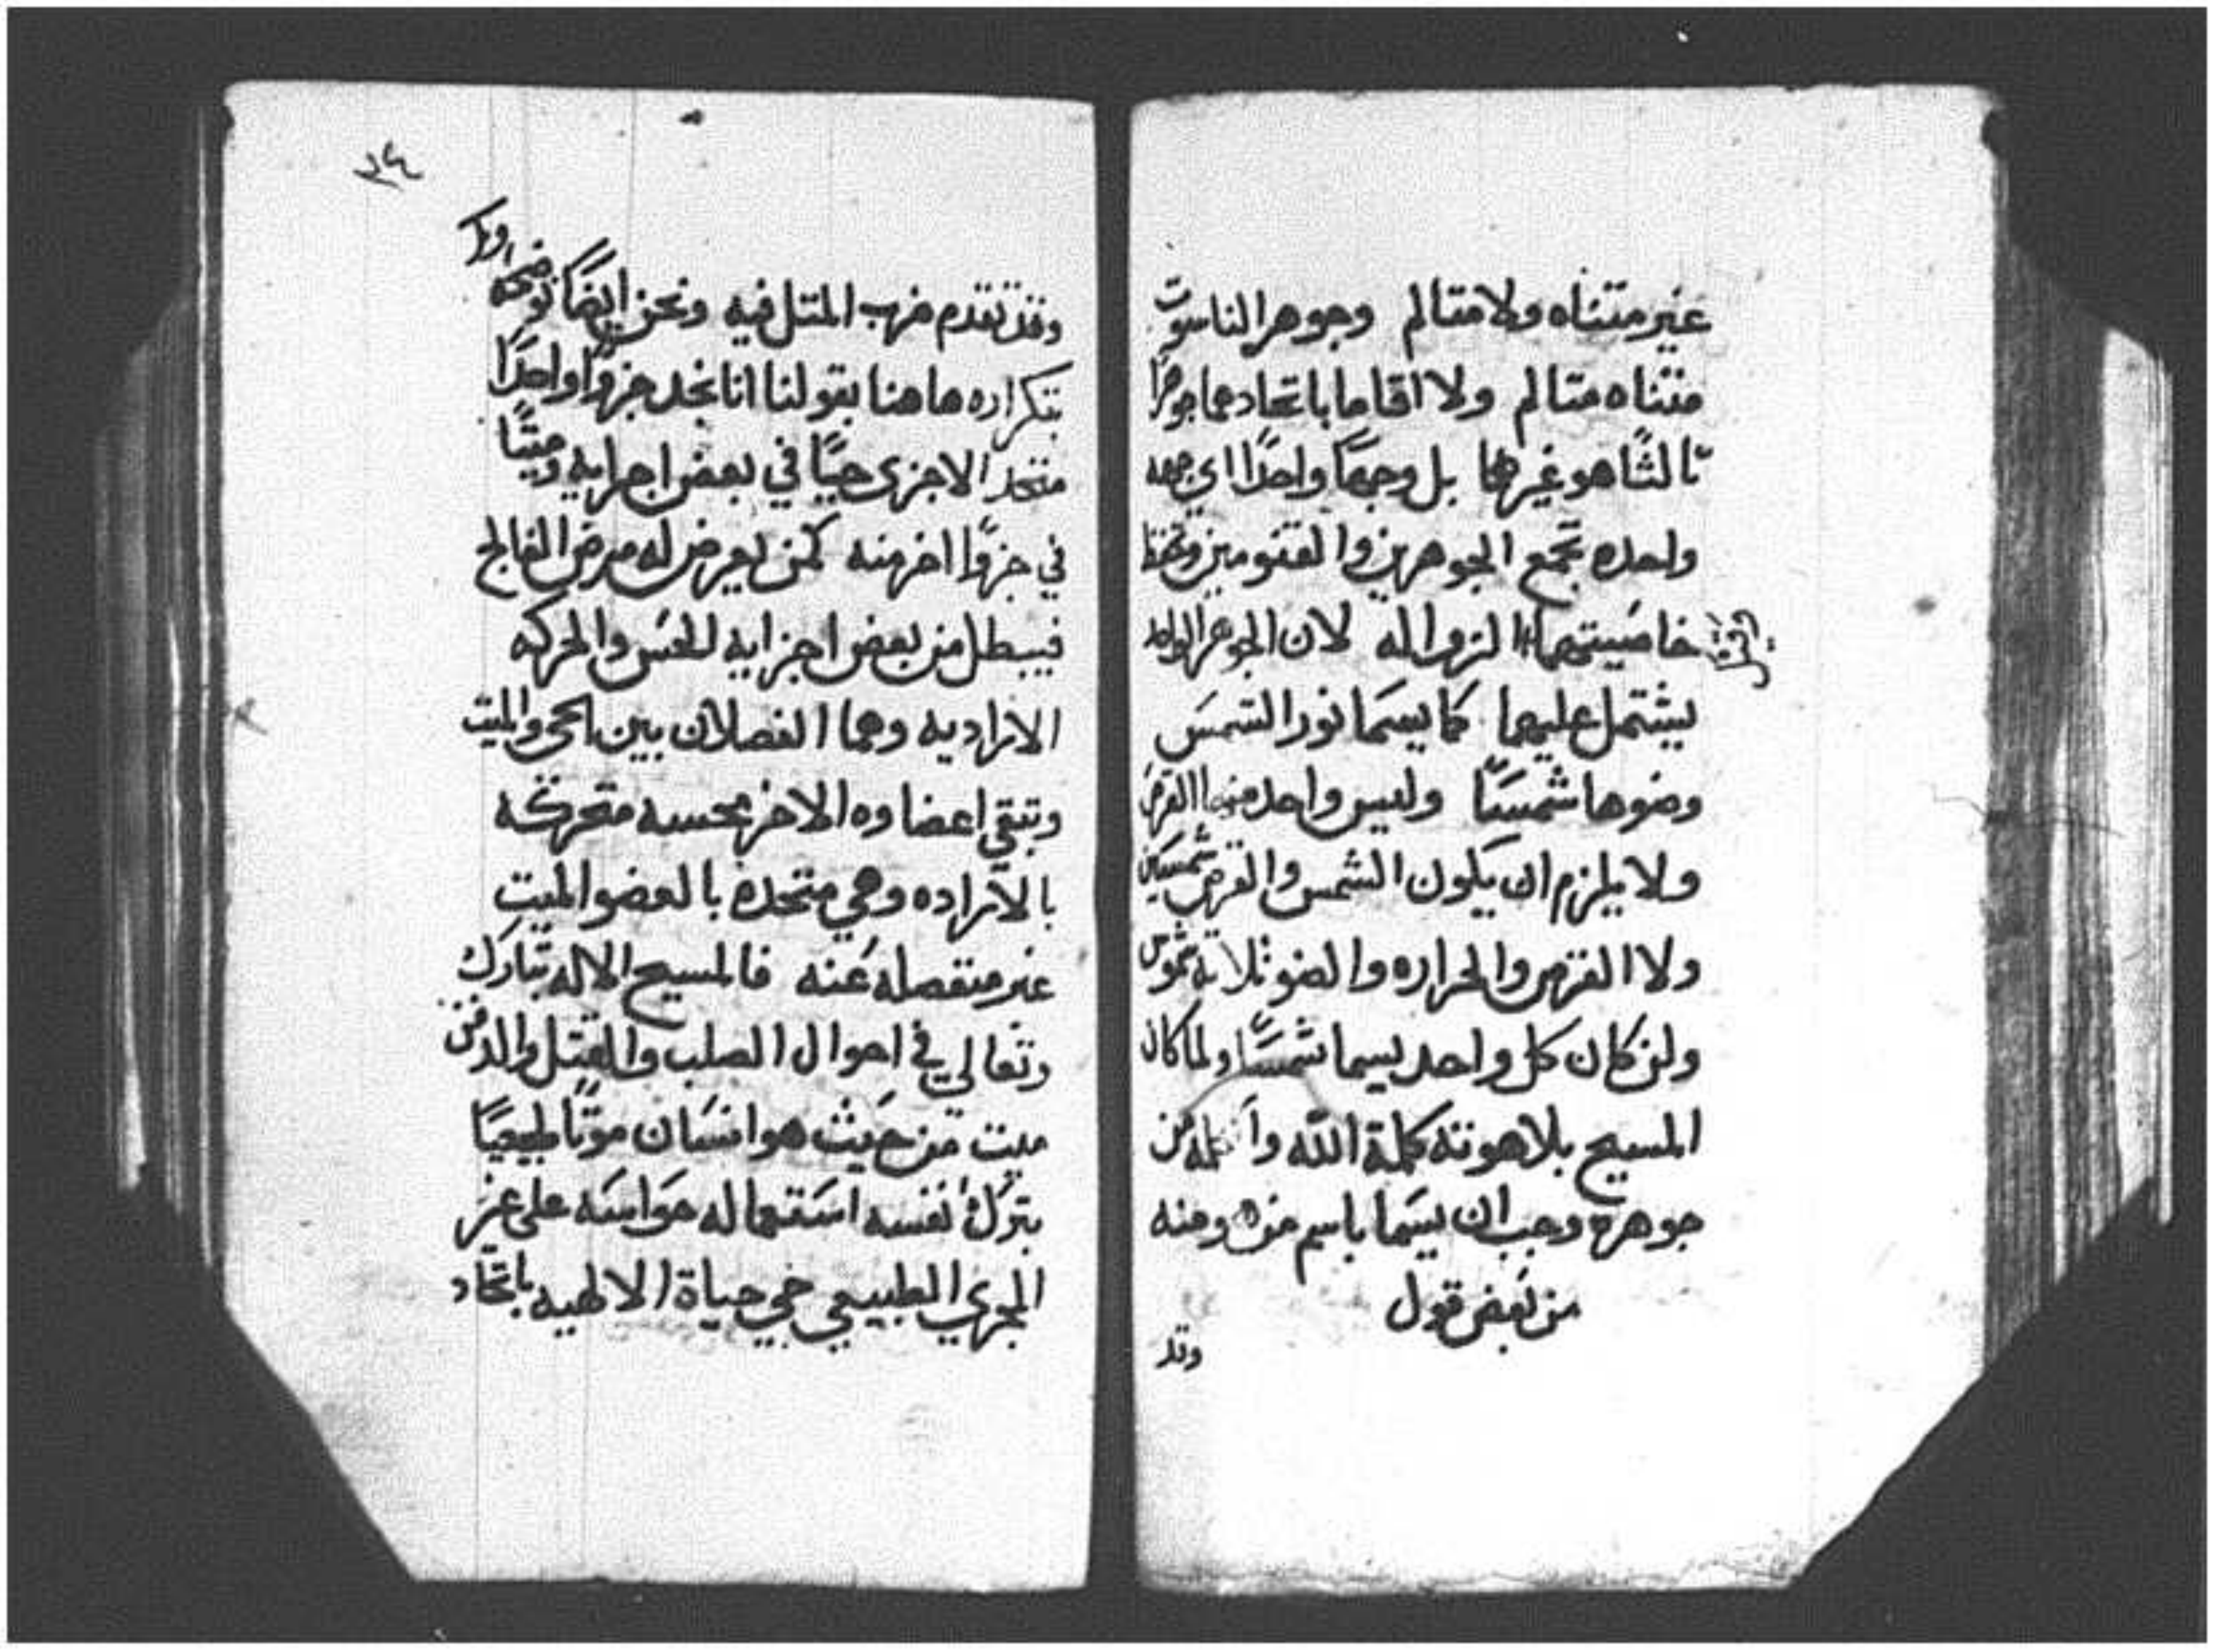 غير متناه ولا متالم وجوهر الناسوت
متناه متالم ولا اقاما باتحادهما جوهرًا
ثالثًا هو غيرهما بل وجهًا واحدًا اي جهه
واحده تجمع الجوهرين والقنومين وتحفظ
خاصيتهما لان الجوهر الواحد
يشتمل عليهما كما يسما نور الشمس
وضوها شمسًا وليس واحد منهما القرص
ولا يلزم ان يكون الشمس والقرص شمسين
ولا القرص والحراره والضو ثلاثه شموس
ولن كان كل واحد يسما شمسًا ولما كان
المسيح بلاهوته كلمة الله من
جوهره وجب ان يسما باسم منه ومنه
من بعض قول
وقد
٣٤
وقد تقدم ضرب المثل فيه ونحن ايضًا نوضحه
بتكراره هاهنا بقولنا انا نجد جزوًا واحدًا
متحد الاجزى حيًا في بعض اجزايه وميتًا
في جزوًا اخر منه كمن يعرض له مرض الفالج
فيبطل من بعض اجزايه الحس والحركه
الاراديه وهما الفصلان بين الحي والميت
وتبقي اعضاوه الاخر محسه متحركه
بالاراده وهي متحده بالعضو الميت
غير منفصله عنه فالمسيح الاله تبارك
وتعالي في احوال الصلب والقتل والدفن
ميت من حيث هو انسان موتًا طبيعيًا
بترك نفسه استعماله حواسه على غير
المجري الطبيعي حي حياة الالهيه باتحاد